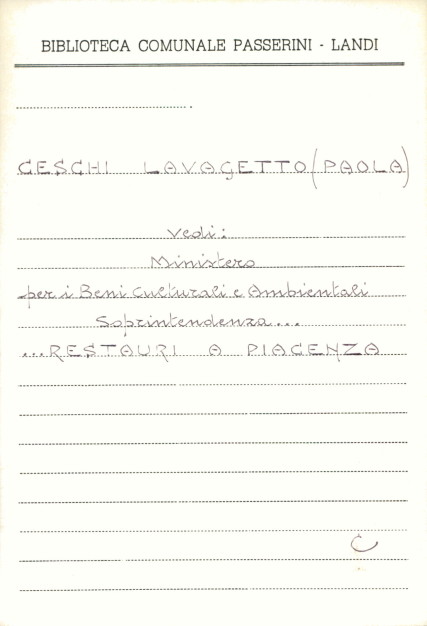 BIBLIOTECA COMUNALE PASSERINI - LANDI
CESCHI LAVAGETTO (PAOLA)
Vedi:
Ministero
per i Beni Culturali e Ambientali
Soprintendenza...
...RESTAURI A PIACENZA
C